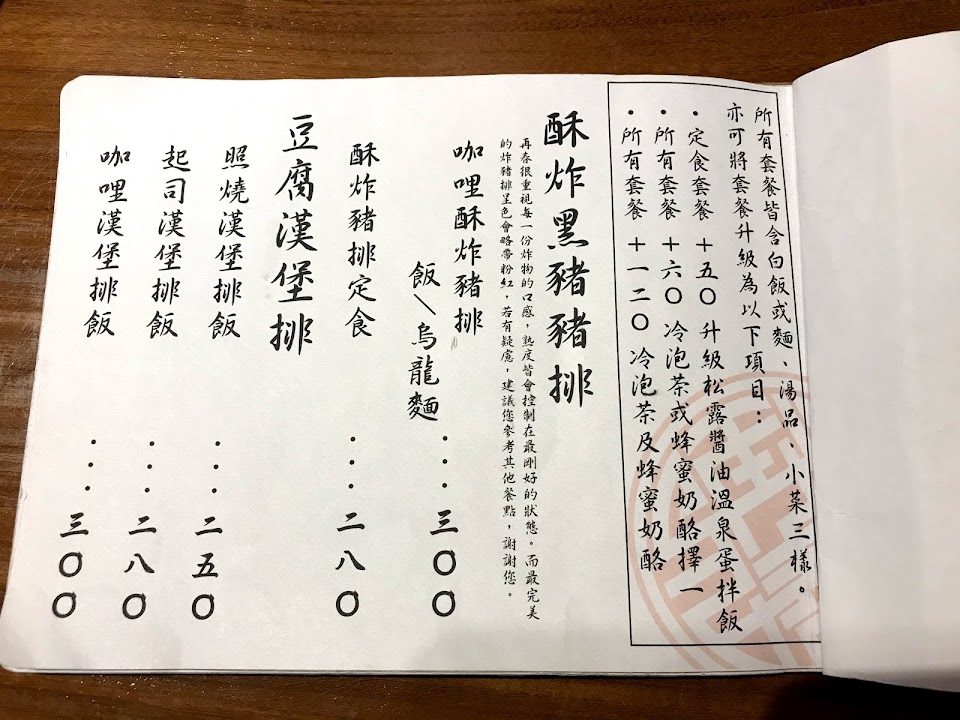 所有套餐皆含白飯或麵、湯品、小菜三樣。
亦可將套餐升級為以下項目：
・定食套餐 +五〇 升級松露醬油溫泉蛋拌飯
・所有套餐 +六〇 冷泡茶或蜂蜜奶酪擇一
・所有套餐 +一二〇 冷泡茶及蜂蜜奶酪
酥炸黑豬豬排
再春很重視每一份炸物的口感，熟度皆會控制在最剛好的狀態。而最完美
的炸豬排呈色會略帶粉紅，若有疑慮，建議您參考其他餐點，謝謝您。
咖哩酥炸豬排
飯\烏龍麵...三〇〇
酥炸豬排定食...二八〇
豆腐漢堡排
照燒漢堡排飯...二五〇
起司漢堡排飯...二八〇
咖哩漢堡排飯...三〇〇